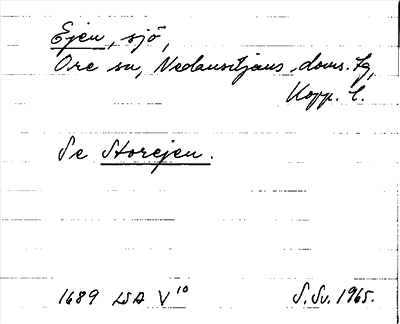 Ejen, sjö,
Ore sn, Nedansiljans doms. tg,
Kopp. l.
Se Storejen.
1689 LSA V 10 S. Sv. 1965.